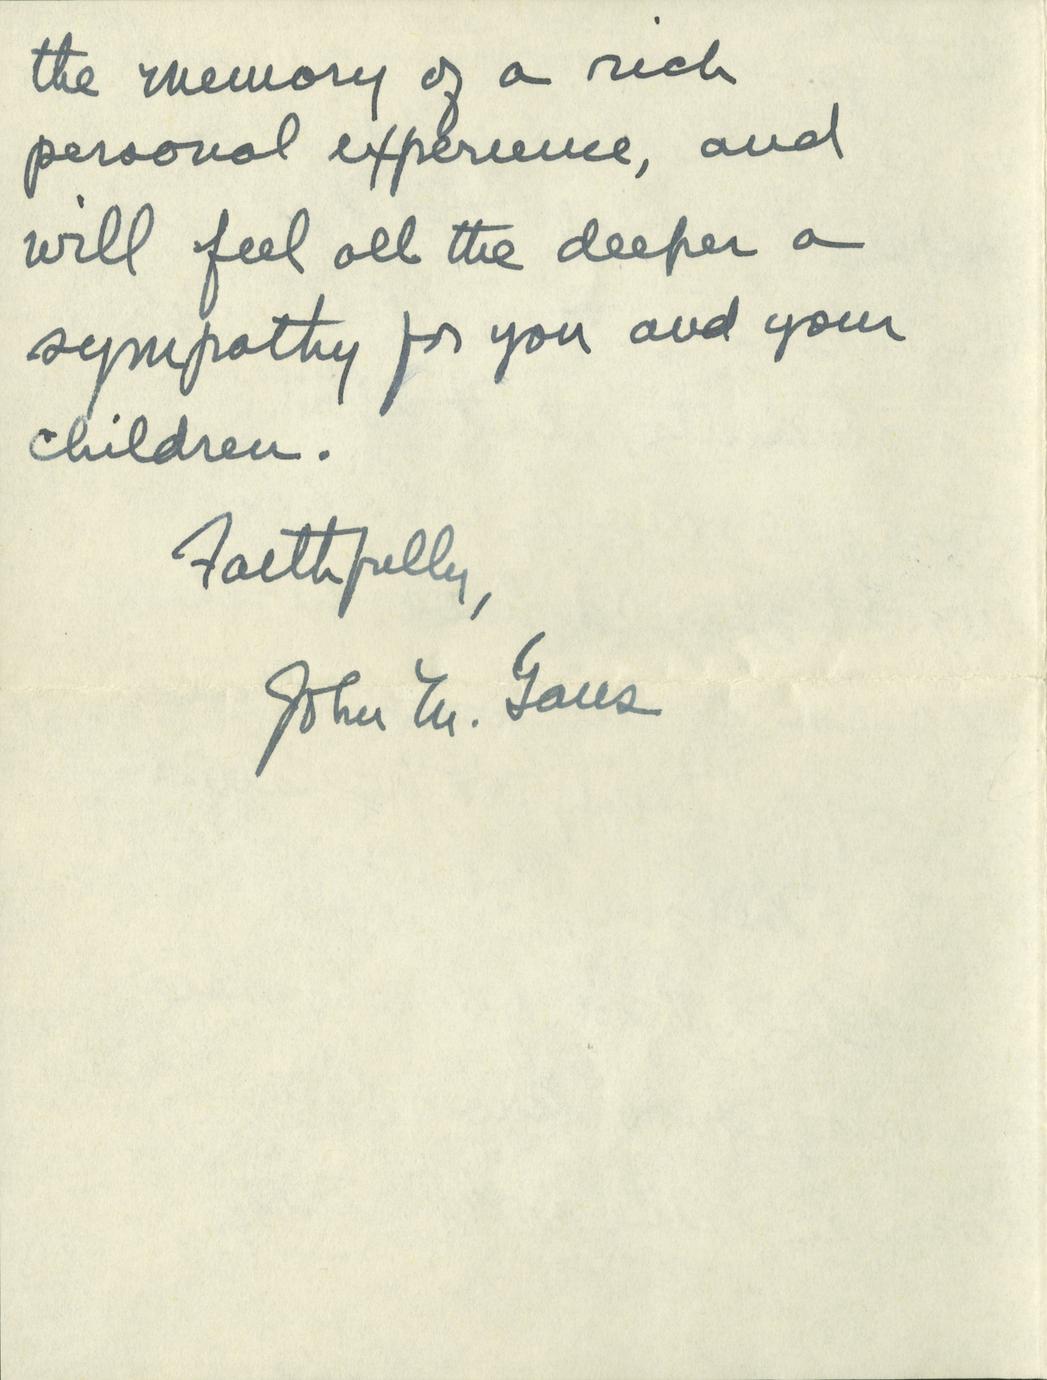 the memory of a rich
personal experience, and
will feel all the deeper a
sympathy for you and your
children.
Faithfully,
John M. Gaus